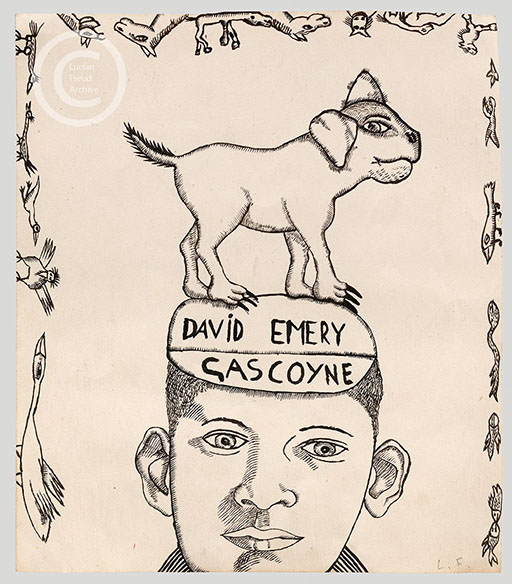 Lucian
Freud
Archive
DAVID EMERY
GASCOYNE
L. F.